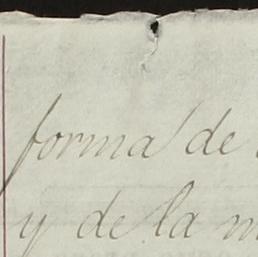 forma de
y de la